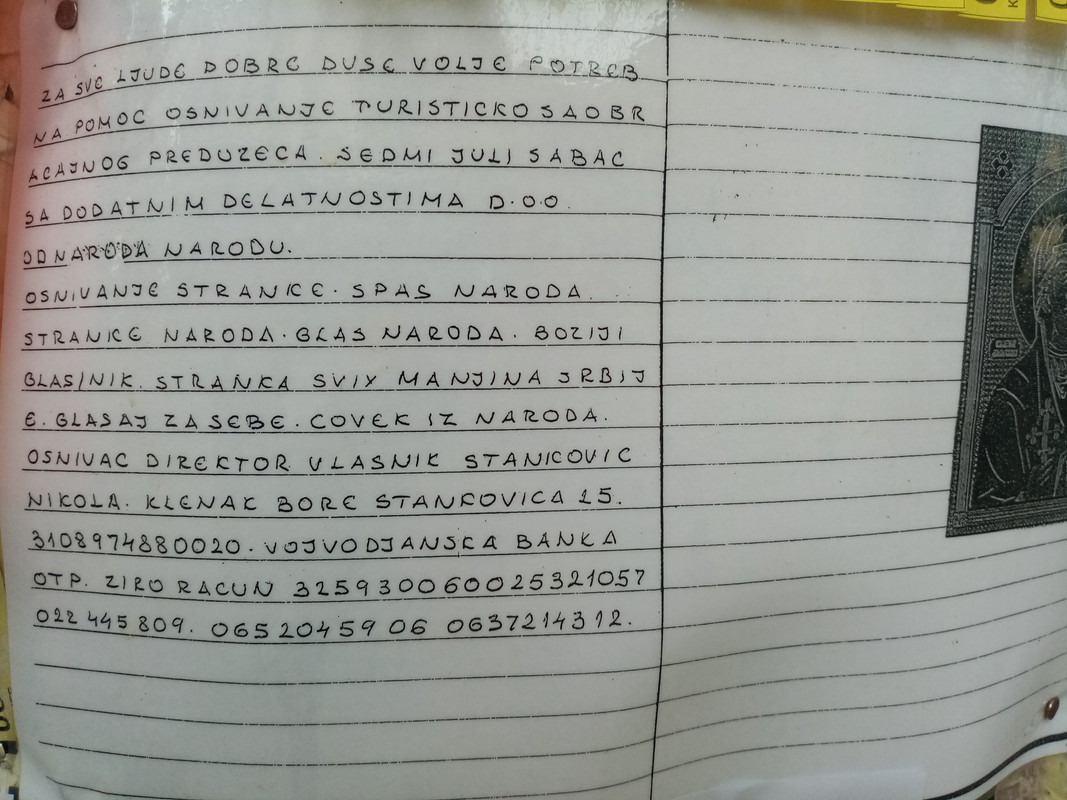 ZA SVE LJUDE DOBRE DUSE VOLJE POTREB
NA POMOC OSNIVANJE TURISTICKO SAOBR
ACAJNOG PREDUZECA. SEDMI JULI SABAC
SA DODATNIM DELATNOSTIMA D.O.O.
OD NARODA NARODU.
OSNIVANJE STRANKE. SPAS NARODA.
STRANKE NARODA. GLAS NARODA. BOZIJI
GLASNIK. STRANKA SVIX MANJINA SRBIJ
E. GLASAJ ZA SEBE. COVEK IZ NARODA.
OSNIVAC DIREKTOR VLASNIK STANKOVIC
NIKOLA. KLENAK BORE STANKOVICA 15.
3108974880020. VOJVODJANSKA BANKA
OTP. ZIRO RACUN 325930060025321057
022 445 809. 065 204 59 06 0637214312.